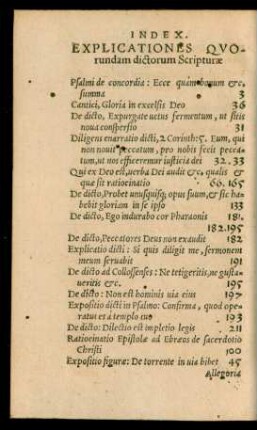 INDEX.
EXPLICATIONES QVO-
rundam dictorum Scripturæ
Psalmi de concordia: Ecce quàm bonum &c.
summa 3
Cantici, Gloria in excelsis Deo 36
De dicto, Expurgate uetus fermentum, ut sitis
noua conspersio 31
Diligens enarratio dicti, 2. Corinth: 5. Eum, qui
non nouit peccatum, pro nobis fecit pecca-
tum, ut nos efficeremur iusticia dei 32.33
Qui ex Deo est, uerba Dei audit &c, qualis &
que sit ratiocinatio 66.165
De dicto, Probet unusquisq; opus suum, & sic ha-
bebit gloriam in se ipso 133
De dicto, Ego indurabo cor Pharaonis 181.
182.195
De dicto, Peccatores Deus non exaudit 182
Explicatio dicti: Si quis diligit me, sermonem
meum seruabit 191
De dicto ad Collossenses: Ne tetigeritis, ne gusta-
ueritis &c. 195
De dicto: Non est hominis uia eius 197
Expositio dicti in Psalmo: Confirma, quod ope-
ratus es à templo tuo 193
De dicto: Dilectio est impletio legis 211
Ratiocinatio Epistolæ ad Ebræos de sacerdotio
Christi 100
Expositio figuræ: De torrente in uia bibet 45
Allegoria